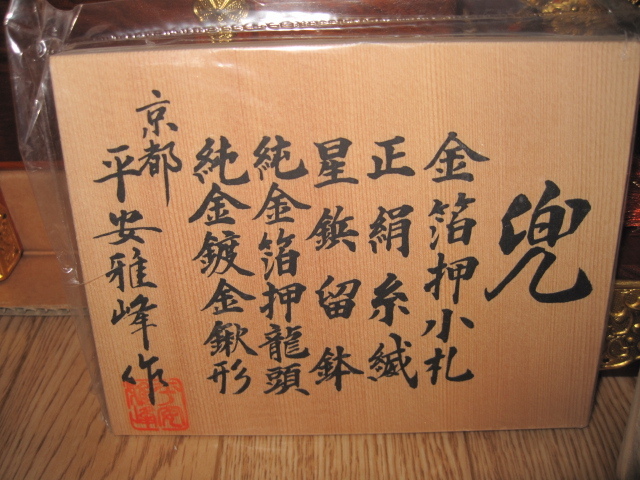 兜
金箔押小札
正絹糸縅
星鋲留鉢
純金箔押龍頭
純金鍍金鍬形
京都
平安雅峰作